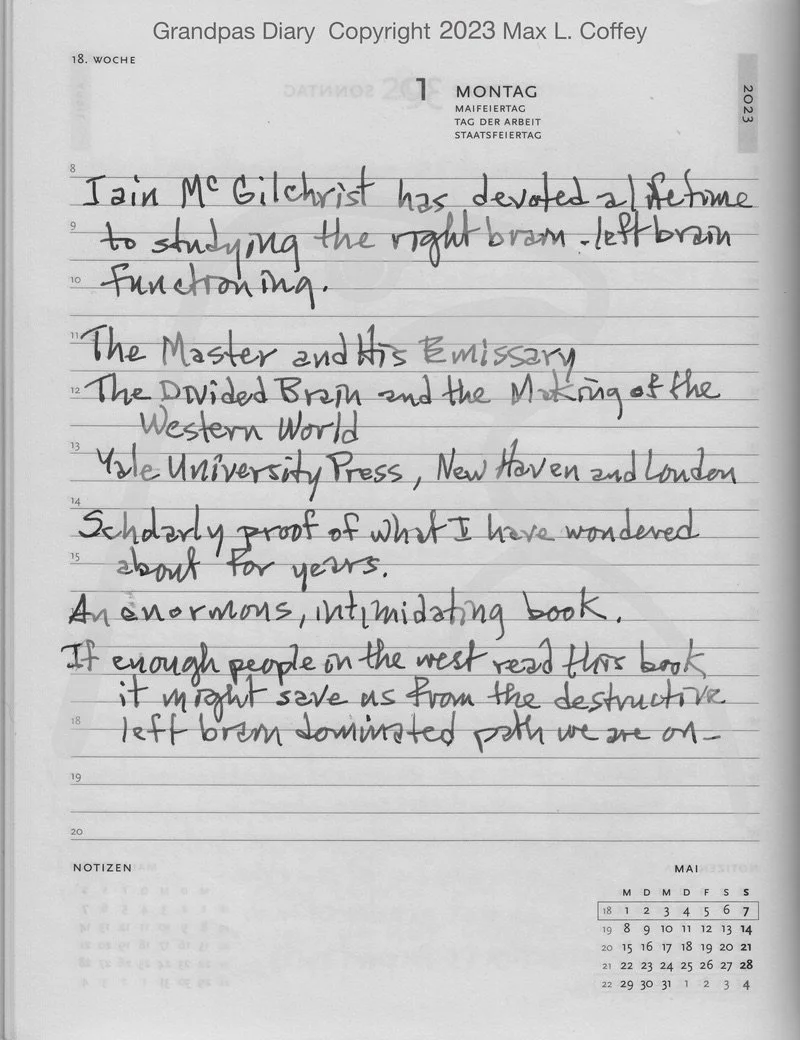 Grandpas Diary Copyright 2023 Max L. Coffey
18. WOCHE
1 MONTAG
MAIFEIERTAG
TAG DER ARBEIT
STAATSFEIERTAG
2023
8
Iain McGilchrist has devoted a lifetime
9
to studying the right brain - left brain
10
functioning.
11
The Master and His Emissary
12
The Divided Brain and the Making of the
Western World
13
Yale University Press, New Haven and London
14
Scholarly proof of what I have wondered
15
about for years.
An enormous, intimidating book.
If enough people in the west read this book
it might save us from the destructive
18
left brain dominated path we are on-
19
20
NOTIZEN
MAI
M D M D F S S
18 1 2 3 4 5 6 7
19 8 9 10 11 12 13 14
20 15 16 17 18 19 20 21
21 22 23 24 25 26 27 28
22 29 30 31 1 2 3 4